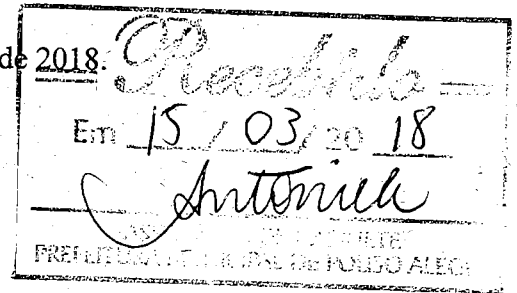 de 2018.
Recebido
Em 15 / 03 / 20 18
PREFEITURA MUNICIPAL DE POUSO ALEGRE